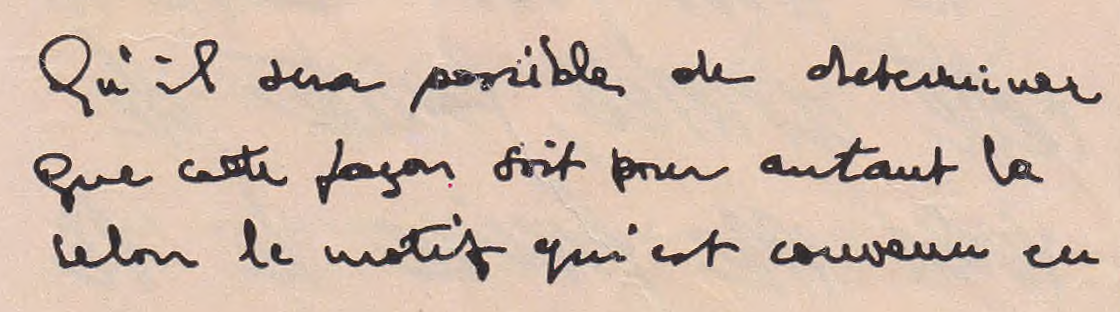 Qu'il sera possible de determiner
que cette façon soit pour autant la
selon le motif qui est convenu en